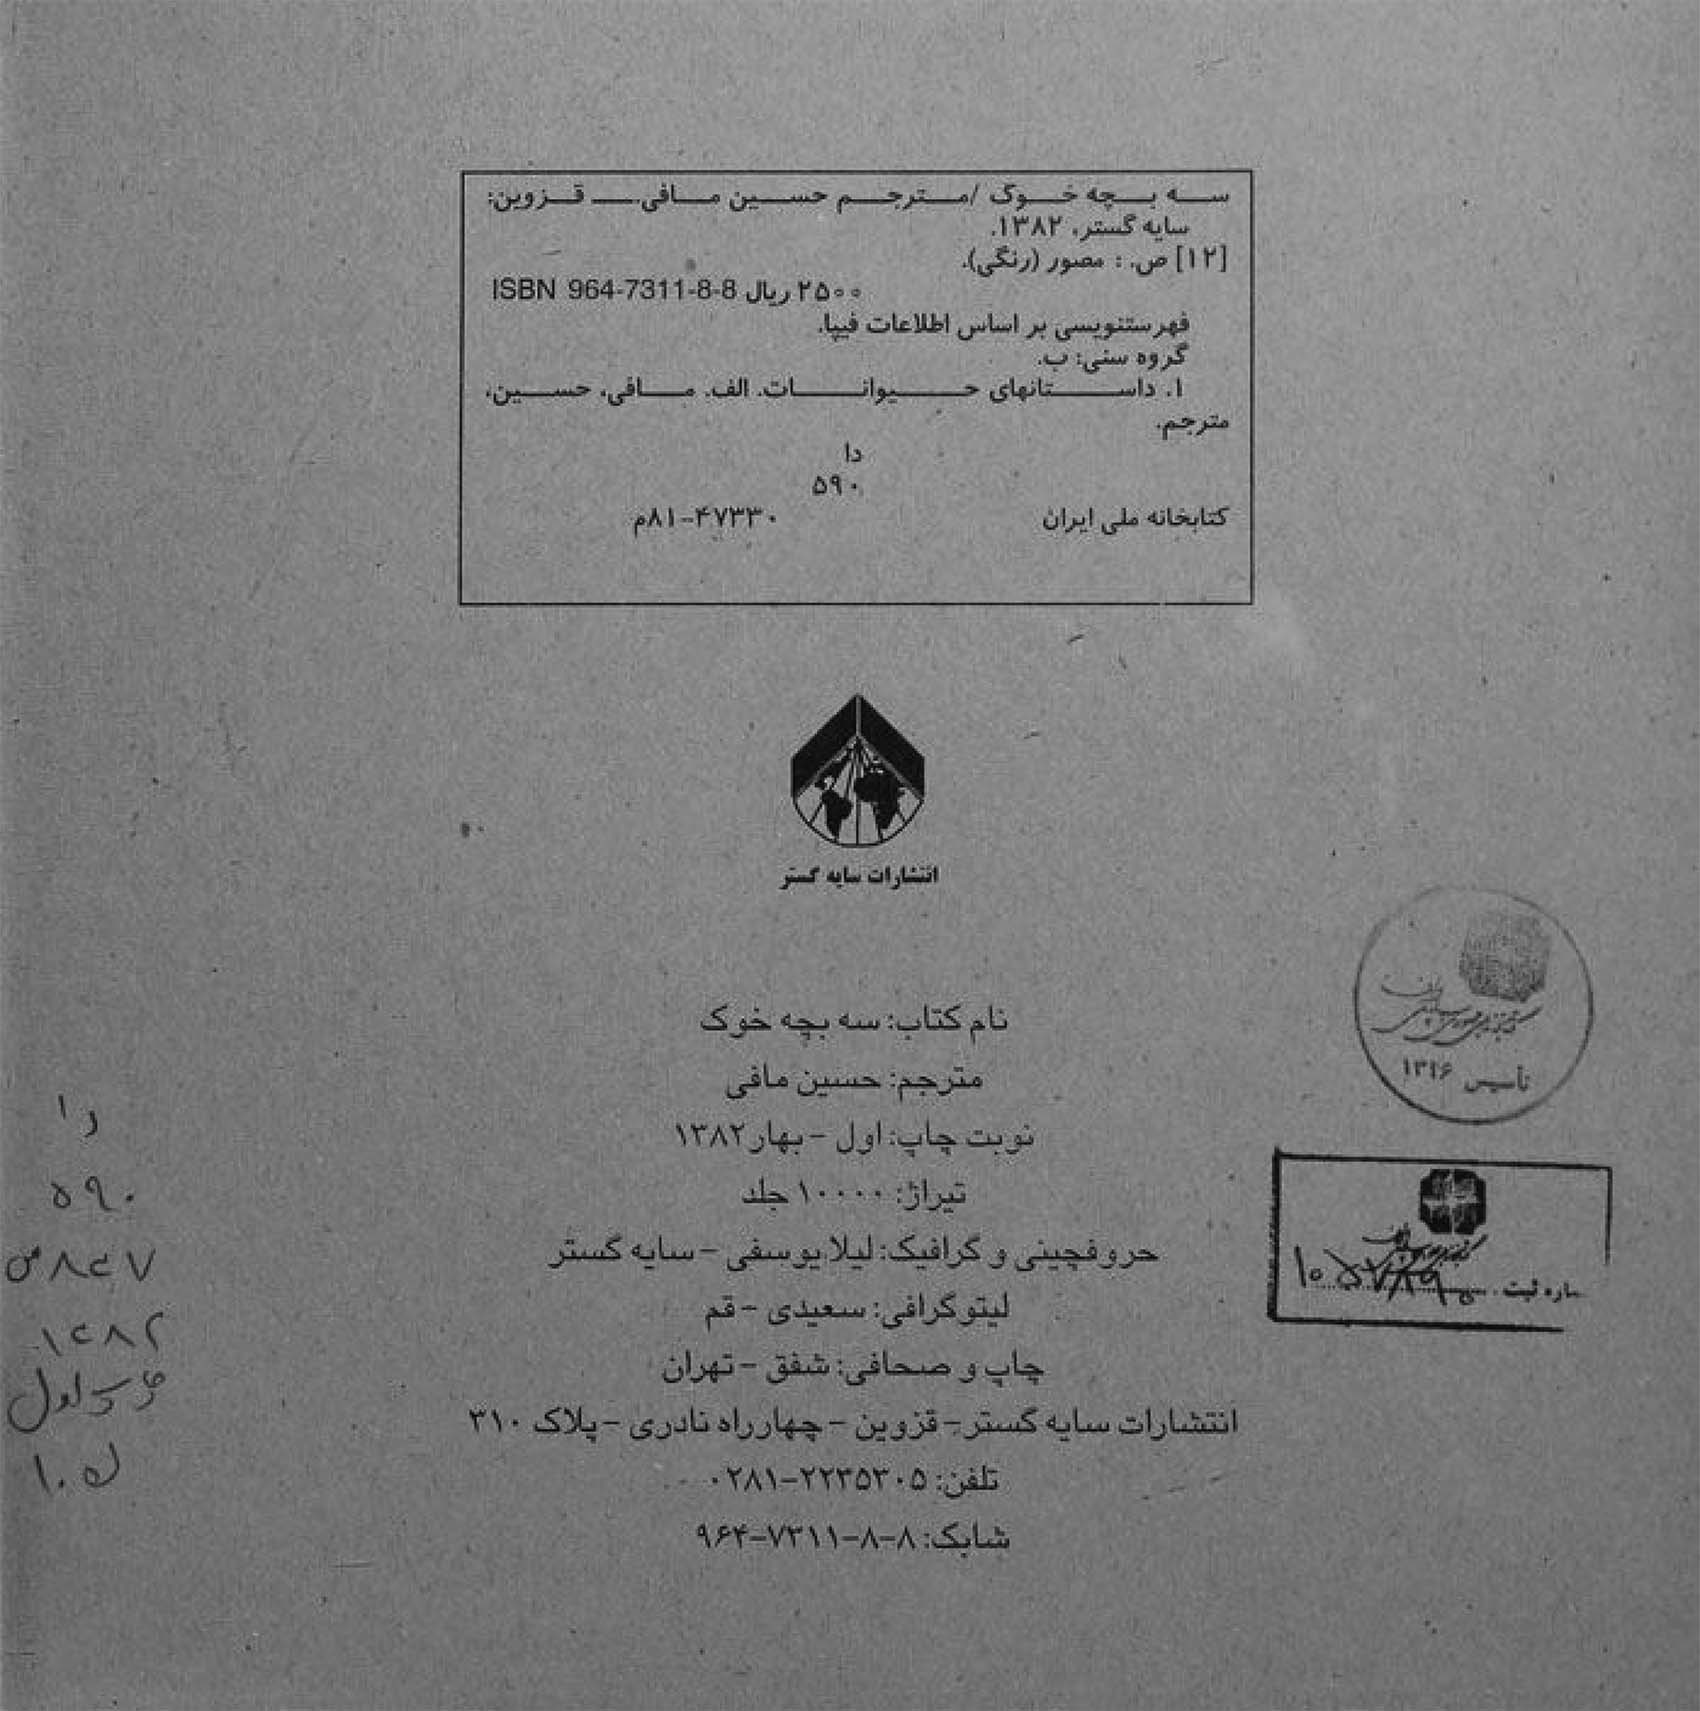 سه بچه خوک /مترجم حسین مافی.ـــ قزوین:
سایه گستر، ۱۳۸۲.
[۱۲] ص. : مصور (رنگی).
ISBN 964-7311-8-8 ریال ۲۵۰۰
فهرستنویسی بر اساس اطلاعات فیپا.
گروه سنی: ب.
۱. داستانهای حیوانات. الف. مافی، حسین،
مترجم.
دا
۵۹۰
کتابخانه ملی ایران ۴۷۳۳۰-۸۱م
انتشارات سایه گستر
نام کتاب: سه بچه خوک
مترجم: حسین مافی
نوبت چاپ: اول - بهار ۱۳۸۲
تیراژ: ۱۰۰۰۰ جلد
حروفچینی و گرافیک: لیلا یوسفی - سایه گستر
لیتوگرافی: سعیدی - قم
چاپ و صحافی: شفق - تهران
انتشارات سایه گستر - قزوین - چهارراه نادری - پلاک ۳۱۰
تلفن: ۲۲۳۵۳۰۵-۰۲۸۱
شابک: ۸-۸-۷۳۱۱-۹۶۴
تأسیس ۱۳۱۶
ثبت
دا
۵۹۰
۱۳۸۲